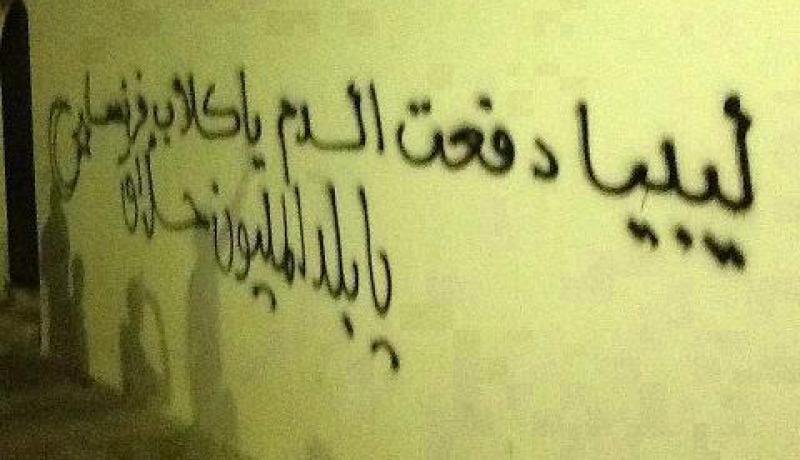 ليبيا دفعت الدم يا كلاب فرنسا
يا بلد المليون حلاق